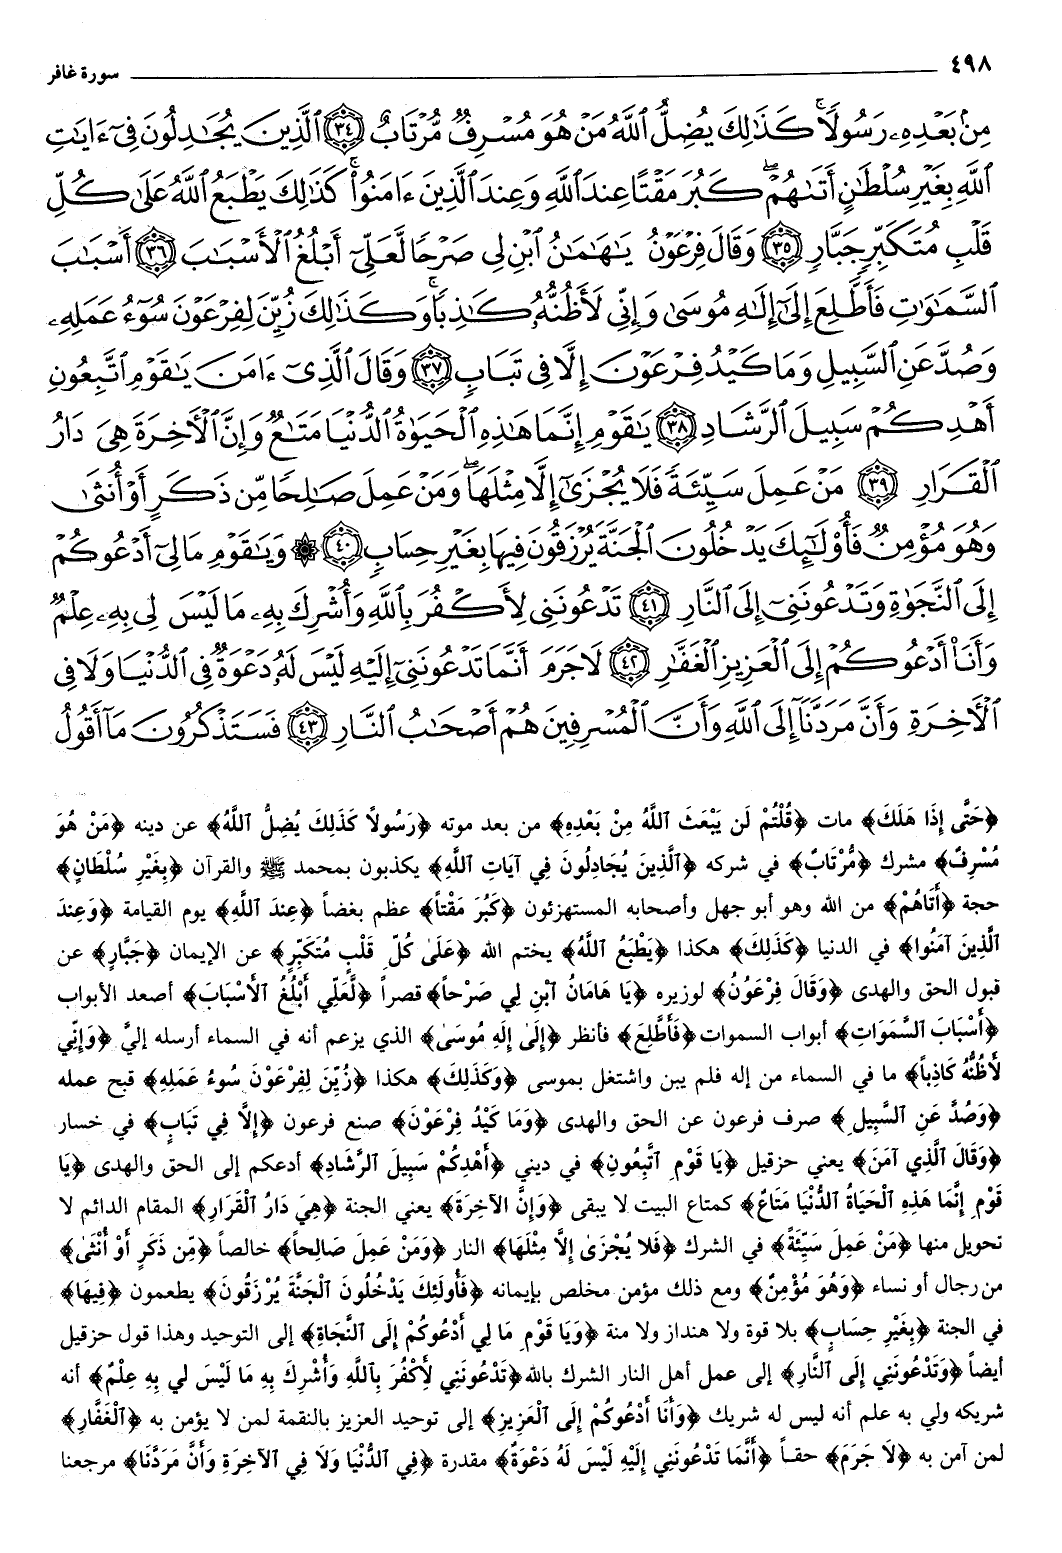 ٤٩٨ سورة غافر
مِنۢ بَعۡدِهِۦ رَسُولٗاۚ كَذَٰلِكَ يُضِلُّ ٱللَّهُ مَنۡ هُوَ مُسۡرِفٞ مُّرۡتَابٌ ﴿٣٤﴾ ٱلَّذِينَ يُجَٰدِلُونَ فِيٓ ءَايَٰتِ
ٱللَّهِ بِغَيۡرِ سُلۡطَٰنٍ أَتَىٰهُمۡۖ كَبُرَ مَقۡتًا عِندَ ٱللَّهِ وَعِندَ ٱلَّذِينَ ءَامَنُواْۚ كَذَٰلِكَ يَطۡبَعُ ٱللَّهُ عَلَىٰ كُلِّ
قَلۡبِ مُتَكَبِّرٖ جَبَّارٖ ﴿٣٥﴾ وَقَالَ فِرۡعَوۡنُ يَٰهَٰمَٰنُ ٱبۡنِ لِي صَرۡحٗا لَّعَلِّيٓ أَبۡلُغُ ٱلۡأَسۡبَٰبَ ﴿٣٦﴾ أَسۡبَٰبَ
ٱلسَّمَٰوَٰتِ فَأَطَّلِعَ إِلَىٰٓ إِلَٰهِ مُوسَىٰ وَإِنِّي لَأَظُنُّهُۥ كَٰذِبٗاۚ وَكَذَٰلِكَ زُيِّنَ لِفِرۡعَوۡنَ سُوٓءُ عَمَلِهِۦ
وَصُدَّ عَنِ ٱلسَّبِيلِۚ وَمَا كَيۡدُ فِرۡعَوۡنَ إِلَّا فِي تَبَابٖ ﴿٣٧﴾ وَقَالَ ٱلَّذِيٓ ءَامَنَ يَٰقَوۡمِ ٱتَّبِعُونِ
أَهۡدِكُمۡ سَبِيلَ ٱلرَّشَادِ ﴿٣٨﴾ يَٰقَوۡمِ إِنَّمَا هَٰذِهِ ٱلۡحَيَوٰةُ ٱلدُّنۡيَا مَتَٰعٞ وَإِنَّ ٱلۡأٓخِرَةَ هِيَ دَارُ
ٱلۡقَرَارِ ﴿٣٩﴾ مَنۡ عَمِلَ سَيِّئَةٗ فَلَا يُجۡزَىٰٓ إِلَّا مِثۡلَهَاۖ وَمَنۡ عَمِلَ صَٰلِحٗا مِّن ذَكَرٍ أَوۡ أُنثَىٰ
وَهُوَ مُؤۡمِنٞ فَأُوْلَٰٓئِكَ يَدۡخُلُونَ ٱلۡجَنَّةَ يُرۡزَقُونَ فِيهَا بِغَيۡرِ حِسَابٖ ﴿٤٠﴾ ۞ وَيَٰقَوۡمِ مَا لِيٓ أَدۡعُوكُمۡ
إِلَى ٱلنَّجَوٰةِ وَتَدۡعُونَنِيٓ إِلَى ٱلنَّارِ ﴿٤١﴾ تَدۡعُونَنِي لِأَكۡفُرَ بِٱللَّهِ وَأُشۡرِكَ بِهِۦ مَا لَيۡسَ لِي بِهِۦ عِلۡمٞ
وَأَنَا۠ أَدۡعُوكُمۡ إِلَى ٱلۡعَزِيزِ ٱلۡغَفَّٰرِ ﴿٤٢﴾ لَا جَرَمَ أَنَّمَا تَدۡعُونَنِيٓ إِلَيۡهِ لَيۡسَ لَهُۥ دَعۡوَةٞ فِي ٱلدُّنۡيَا وَلَا فِي
ٱلۡأٓخِرَةِ وَأَنَّ مَرَدَّنَآ إِلَى ٱللَّهِ وَأَنَّ ٱلۡمُسۡرِفِينَ هُمۡ أَصۡحَٰبُ ٱلنَّارِ ﴿٤٣﴾ فَسَتَذۡكُرُونَ مَآ أَقُولُ
﴿حَتَّى إِذَا هَلَكَ﴾ مات ﴿قُلْتُمْ لَن يَبْعَثَ ٱللَّهُ مِنْ بَعْدِهِ﴾ من بعد موته ﴿رَسُولاً كَذَلِكَ يُضِلُّ ٱللَّهُ﴾ عن دينه ﴿مَنْ هُوَ
مُسْرِفٌ﴾ مشرك ﴿مُّرْتَابٌ﴾ في شركه ﴿ٱلَّذِينَ يُجَادِلُونَ فِي آيَاتِ ٱللَّهِ﴾ يكذبون بمحمد ﷺ والقرآن ﴿بِغَيْرِ سُلْطَانٍ﴾
حجة ﴿أَتَاهُمْ﴾ من الله وهو أبو جهل وأصحابه المستهزئون ﴿كَبُرَ مَقْتاً﴾ عظم بغضاً ﴿عِندَ ٱللَّهِ﴾ يوم القيامة ﴿وَعِندَ
ٱلَّذِينَ آمَنُوا﴾ في الدنيا ﴿كَذَلِكَ﴾ هكذا ﴿يَطْبَعُ ٱللَّهُ﴾ يختم الله ﴿عَلَىٰ كُلِّ قَلْبِ مُتَكَبِّرٍ﴾ عن الإيمان ﴿جَبَّارٍ﴾ عن
قبول الحق والهدى ﴿وَقَالَ فِرْعَوْنُ﴾ لوزيره ﴿يَا هَامَانُ ٱبْنِ لِي صَرْحاً﴾ قصراً ﴿لَّعَلِّي أَبْلُغُ ٱلأَسْبَابَ﴾ أصعد الأبواب
﴿أَسْبَابَ ٱلسَّمَوَاتِ﴾ أبواب السموات ﴿فَأَطَّلِعَ﴾ فأنظر ﴿إِلَىٰ إِلَهِ مُوسَىٰ﴾ الذي يزعم أنه في السماء أرسله إليَّ ﴿وَإِنِّي
لأَظُنُّهُ كَاذِباً﴾ ما في السماء من إله فلم يبن واشتغل بموسى ﴿وَكَذَلِكَ﴾ هكذا ﴿زُيِّنَ لِفِرْعَوْنَ سُوءُ عَمَلِهِ﴾ قبح عمله
﴿وَصُدَّ عَنِ ٱلسَّبِيلِ﴾ صرف فرعون عن الحق والهدى ﴿وَمَا كَيْدُ فِرْعَوْنَ﴾ صنع فرعون ﴿إِلاَّ فِي تَبَابٍ﴾ في خسار
﴿وَقَالَ ٱلَّذِي آمَنَ﴾ يعني حزقيل ﴿يَا قَوْمِ ٱتَّبِعُونِ﴾ في ديني ﴿أَهْدِكُمْ سَبِيلَ ٱلرَّشَادِ﴾ أدعكم إلى الحق والهدى ﴿يَا
قَوْمِ إِنَّمَا هَذِهِ ٱلْحَيَاةُ ٱلدُّنْيَا مَتَاعٌ﴾ كمتاع البيت لا يبقى ﴿وَإِنَّ ٱلآخِرَةَ﴾ يعني الجنة ﴿هِيَ دَارُ ٱلْقَرَارِ﴾ المقام الدائم لا
تحويل منها ﴿مَنْ عَمِلَ سَيِّئَةً﴾ في الشرك ﴿فَلاَ يُجْزَىٰ إِلاَّ مِثْلَهَا﴾ النار ﴿وَمَنْ عَمِلَ صَالِحاً﴾ خالصاً ﴿مِّن ذَكَرٍ أَوْ أُنْثَىٰ﴾
من رجال أو نساء ﴿وَهُوَ مُؤْمِنٌ﴾ ومع ذلك مؤمن مخلص بإيمانه ﴿فَأُولَئِكَ يَدْخُلُونَ ٱلْجَنَّةَ يُرْزَقُونَ﴾ يطعمون ﴿فِيهَا﴾
في الجنة ﴿بِغَيْرِ حِسَابٍ﴾ بلا قوة ولا هنداز ولا منة ﴿وَيَا قَوْمِ مَا لِي أَدْعُوكُمْ إِلَى ٱلنَّجَاةِ﴾ إلى التوحيد وهذا قول حزقيل
أيضاً ﴿وَتَدْعُونَنِي إِلَى ٱلنَّارِ﴾ إلى عمل أهل النار الشرك بالله ﴿تَدْعُونَنِي لأَكْفُرَ بِٱللَّهِ وَأُشْرِكَ بِهِ مَا لَيْسَ لي بِهِ عِلْمٌ﴾ أنه
شريكه ولي به علم أنه ليس له شريك ﴿وَأَنَا أَدْعُوكُمْ إِلَى ٱلْعَزِيزِ﴾ إلى توحيد العزيز بالنقمة لمن لا يؤمن به ﴿ٱلْغَفَّارِ﴾
لمن آمن به ﴿لاَ جَرَمَ﴾ حقاً ﴿أَنَّمَا تَدْعُونَنِي إِلَيْهِ لَيْسَ لَهُ دَعْوَةٌ﴾ مقدرة ﴿فِي ٱلدُّنْيَا وَلاَ فِي ٱلآخِرَةِ وَأَنَّ مَرَدَّنَا﴾ مرجعنا